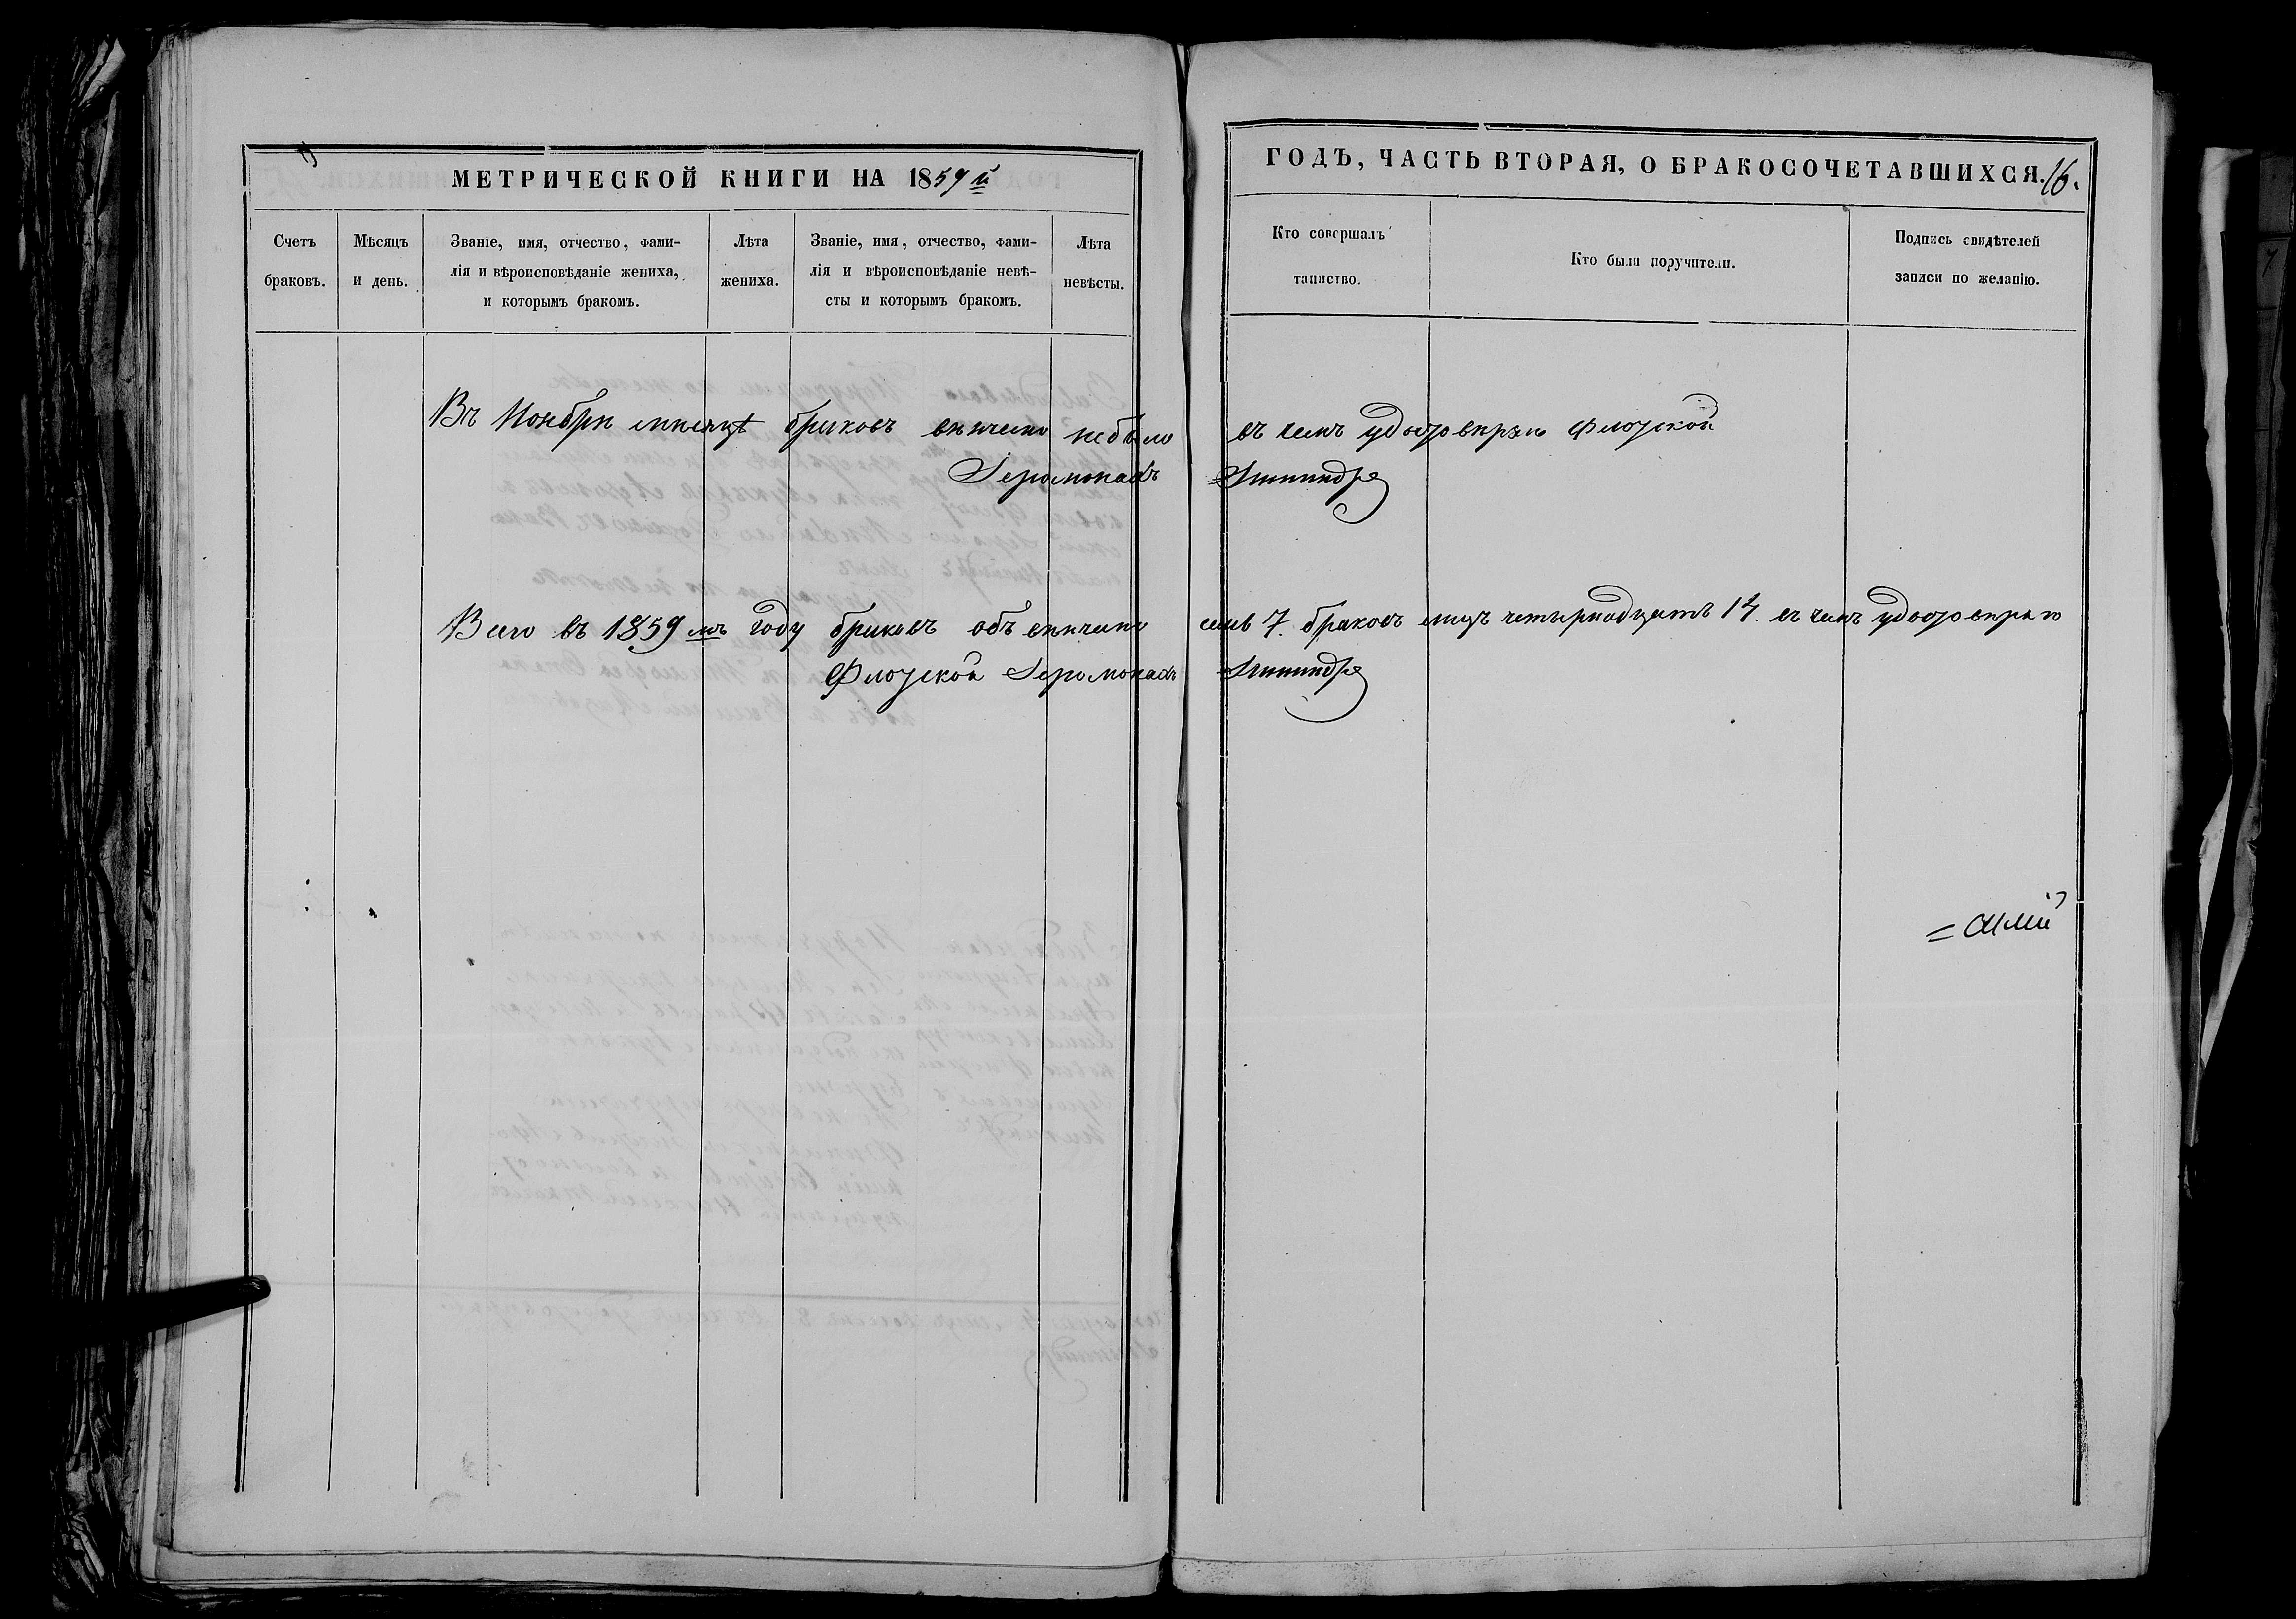 МЕТРИЧЕСКОЙ КНИГИ НА 1859й
Счетъ браковъ.
Мѣсяцъ и день.
Званіе, имя, отчество, фами-
лія и вѣроисповѣданіе жениха,
и которымъ бракомъ.
Лѣта жениха.
Званіе, имя, отчество, фами-
лія и вѣроисповѣданіе невѣ-
сты и которымъ бракомъ.
Лѣта невѣсты.
Въ Ноябрѣ мѣсяцѣ браковъ вѣнчано небыло
Іеромонахъ
Всего въ 1859мъ году браковъ объвѣнчано
Флотской Іеромонахъ
ГОДЪ, ЧАСТЬ ВТОРАЯ, О БРАКОСОЧЕТАВШИХСЯ. 16.
Кто совершалъ
таинство.
Кто были поручители.
Подпись свидѣтелей
записи по желанію.
въ чемъ удостовѣряю Флотской
семь 7. браковъ лицъ четырнадцать 14. въ чемъ удостовѣряю